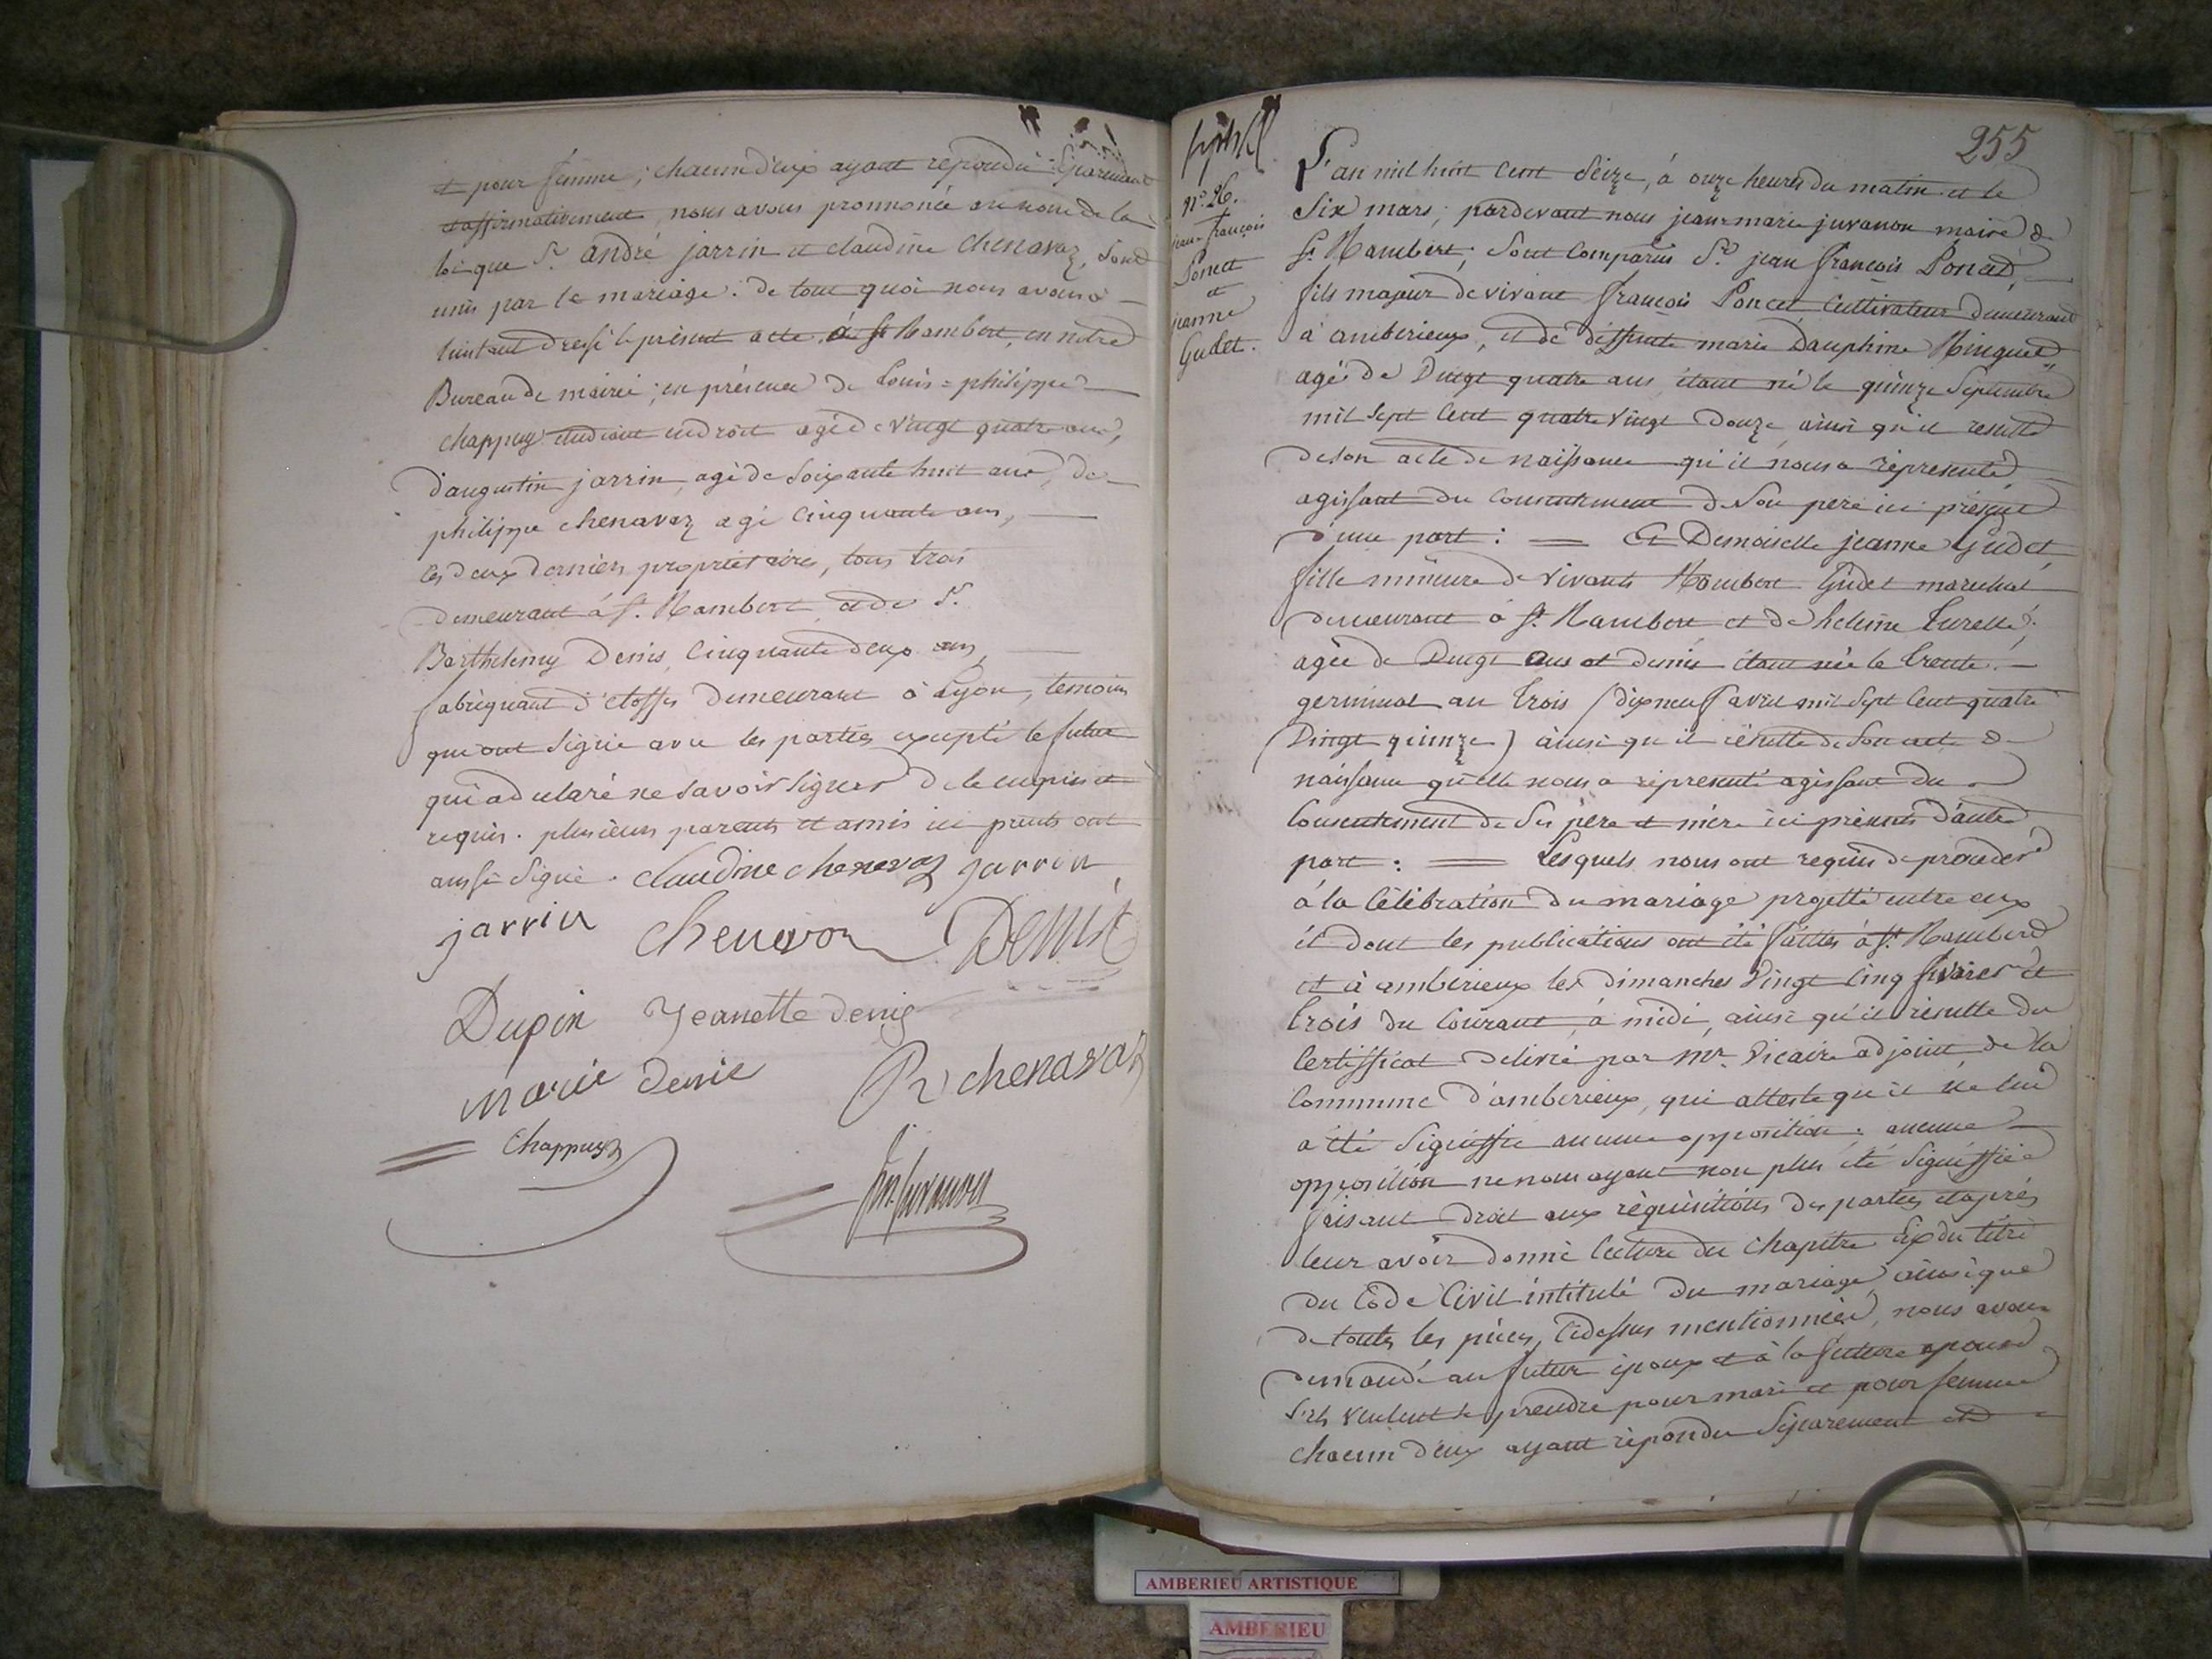 et pour femme; chacun d'eux ayant repondu séparement
et affirmativement, nous avons prononcé au nom de la
loi que Sr. andré jarrin et claudine chenavaz, sont
unis par le mariage. de tout quoi nous avons à
l'instant dressé le présent acte, à St Rambert, en notre
Bureau de mairie; en présence de Louis=philippe
chappuy etudiant en droit agé de vingt quatre ans,
d'augustin jarrin, agé de soixante huit ans, de
philippe chenavaz agé cinquante ans,
les deux derniers propriétaires, tous trois
demeurant à St. Rambert et de Sr.
Barthelemy Denis cinquante deux ans,
fabriquant d'étoffes demeurant à Lyon, temoins
qui ont signé avec les parties excepté le futur
qui a declaré ne savoir signer de ce enquis et
requis. plusieurs parents et amis ici prents ont
aussi signé. claudine chenevaz jarrin
jarrin chenavaz Denis
Dupin jeanette denis
marie denis Ph chenavaz
Chappuy
jm juvanon
255
nº. 26.
jean-françois
Poncet
et
jeanne
Gudet.
L'an mil huit cent seize, à onze heures du matin et le
six mars; pardevant nous jean-marie juvanon maire de
St. Rambert; sont comparus Sr. jean françois Poncet,
fils majeur de vivant françois Poncet cultivateur demeurant
à amberieux, et de deffunte marie Dauphine
agé de vingt quatre ans, étant né le quinze septembre
mil sept cent quatre vingt douze ainsi qu'il resulte
de son acte de naissance qu'il nous a représenté,
agissant du consentement de son pere ici présent
d'une part: = Et Demoiselle jeanne Gudet,
fille mineure de vivants Rambert Gudet marechal
demeurant à St. Rambert et de heleine
agée de vingt ans et demie étant née le trente
germinal an trois (dix neuf avril mil sept cent quatre
vingt quinze) ainsi qu'il résulte de son acte de
naissance qu'elle nous a représenté agissant du
consentement de ses père et mère ici présents d'autre
part: = Lesquels nous ont requis de proceder
à la célébration du mariage projetté entre eux
et dont les publications ont été faittes à St. Rambert
et à amberieux les dimanches vingt cinq fevrier et
trois du courant, à midi, ainsi qu'il résulte du
certifficat delivré par Mr. Vicaire adjoint de la
commune d'amberieux, qui atteste qu'il ne lui
a été signiffié aucune opposition. aucune
opposition ne nous ayant non plus été signiffiée
faisant droit aux réquisitions des parties et après
leur avoir donné lecture du chapitre six du titre
du Code Civil intitulé du mariage, ainsi que
de toutes les pièces cidessus mentionnées, nous avons
demandé au futur époux et à la future epouse
s'ils veulent se prendre pour mari et pour femme
chacun d'eux ayant répondu séparement et
AMBERIEU ARTISTIQUE
AMBERIEU